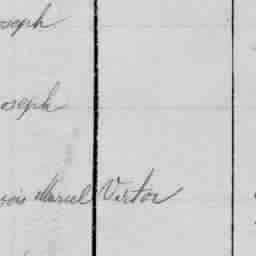 oseph
oseph
çois Marcel Victor